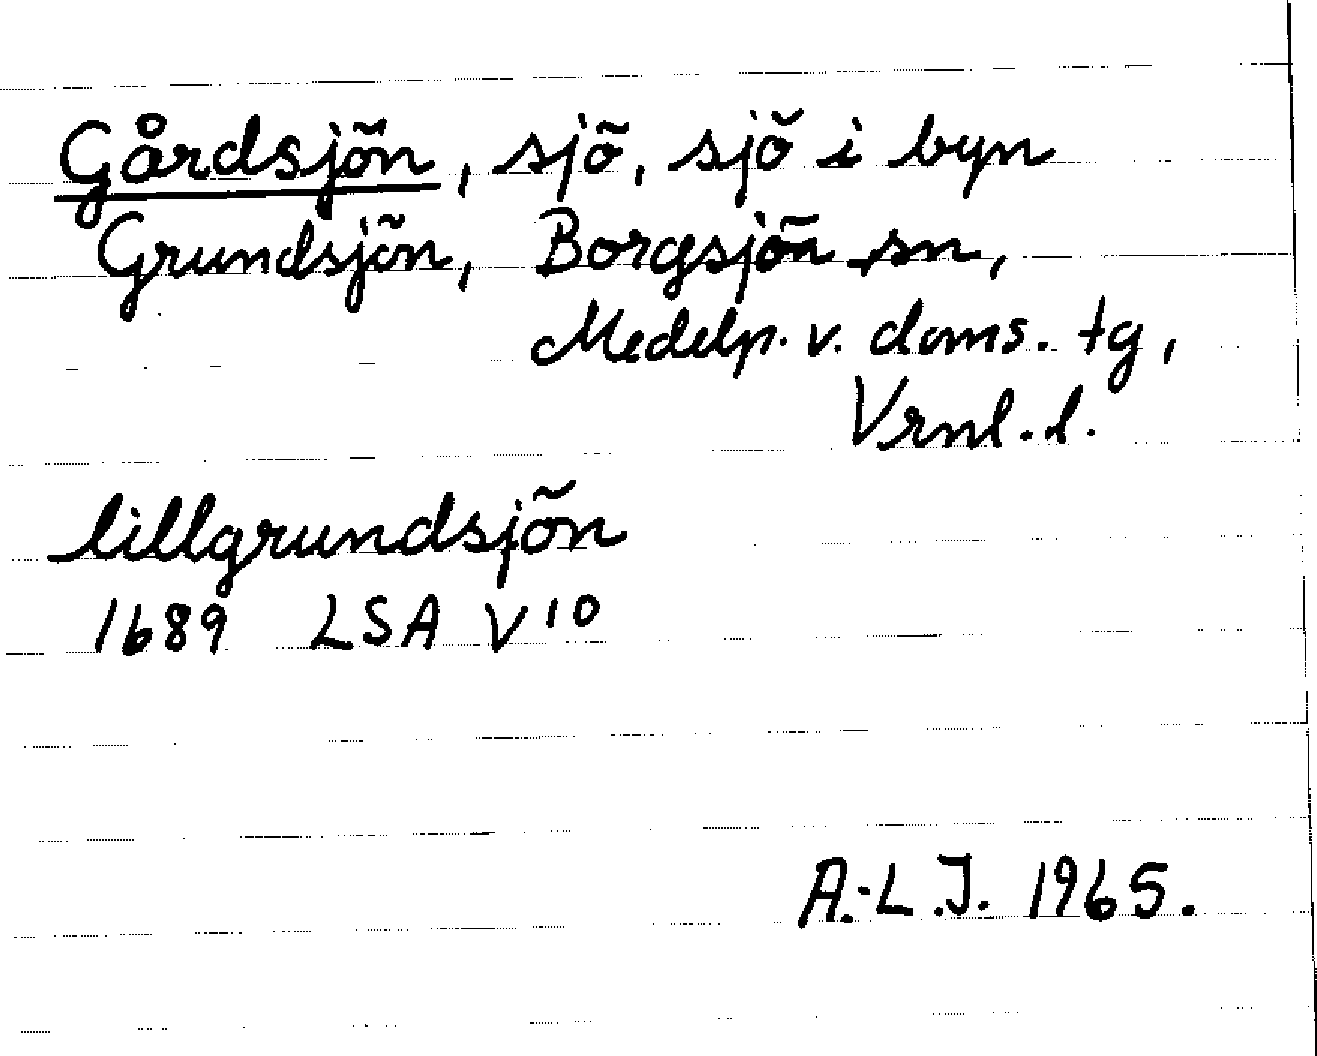 Gårdsjön, sjö, sjö i byn
Grundsjön, Borgsjön sn,
Medelp. v. doms. tg,
Vrnl. l.
lillgrundsjön
1689 LSA V 10
A.-L.J. 1965.